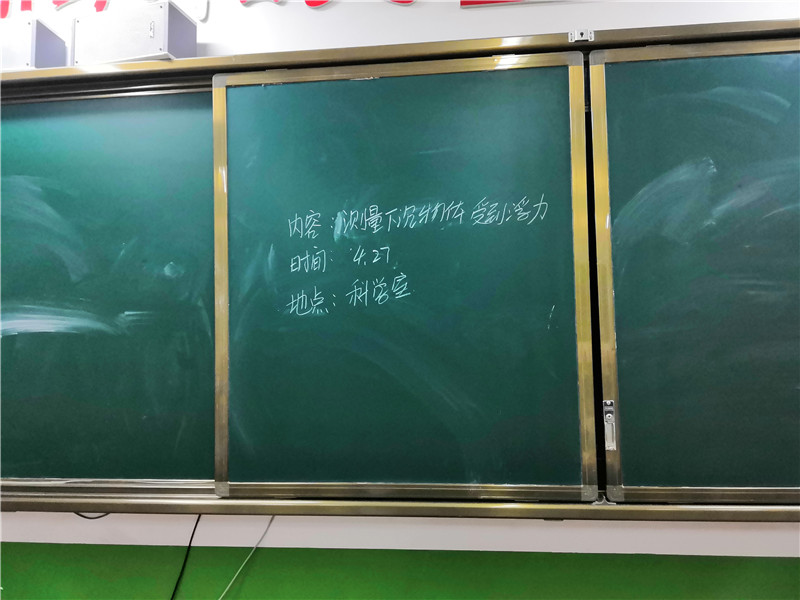 内容：测量下沉物体受到浮力
时间： 4.27
地点：科学室